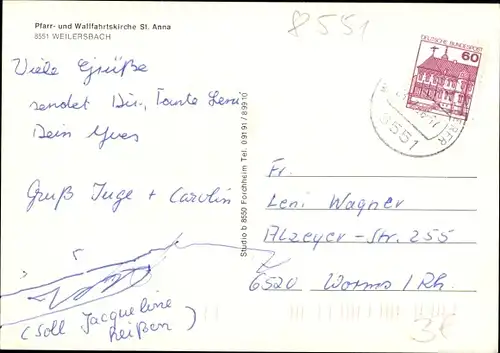 Pfarr- und Wallfahrtskirche St. Anna
8551 WEILERSBACH
8551
DEUTSCHE BUNDESPOST
60
8551
Viele Grüße
sendet Dir, Tante Leni
Dein Yves
Gruß Inge + Carolin
(soll Jacqueline
heißen)
Studio b 8550 Forchheim Tel. 09191/89910
Fr.
Leni Wagner
Alzeyer-Str. 255
6520 Worms / Rh.
3€